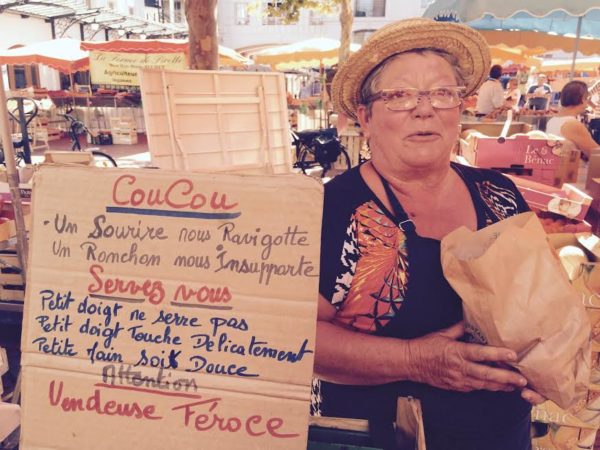 La Ferme de Pirolle
CouCou
Un Sourire nous Ravigotte
Un Ronchon nous Insupporte
Servez vous
Petit doigt ne serre pas
Petit doigt Touche Délicatement
Petite main soit Douce
Attention
Vendeuse Féroce